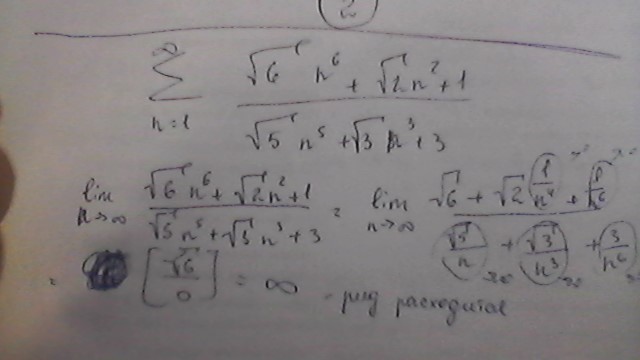 2
∞
∑ (√6 n⁶ + √2 n² + 1) / (√5 n⁵ + √3 n³ + 3)
n=1
lim n→∞ (√6 n⁶ + √2 n² + 1) / (√5 n⁵ + √3 n³ + 3) = lim n→∞ (√6 + √2 (1/n⁴) →0 + (1/n⁶) →0) / ((√5/n) →0 + (√3/n³) →0 + (3/n⁶) →0) =
= [√6/0] = ∞ - ряд расходится